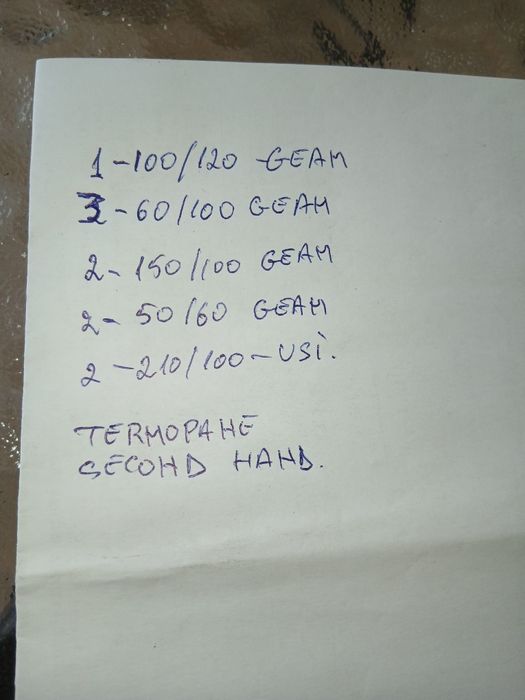 1-100/120 -GEAM
3-60/100 GEAM
2-150/100 GEAM
2-50/60 GEAM
2-210/100-USI.
TERMOPANE
SECOND HAND.